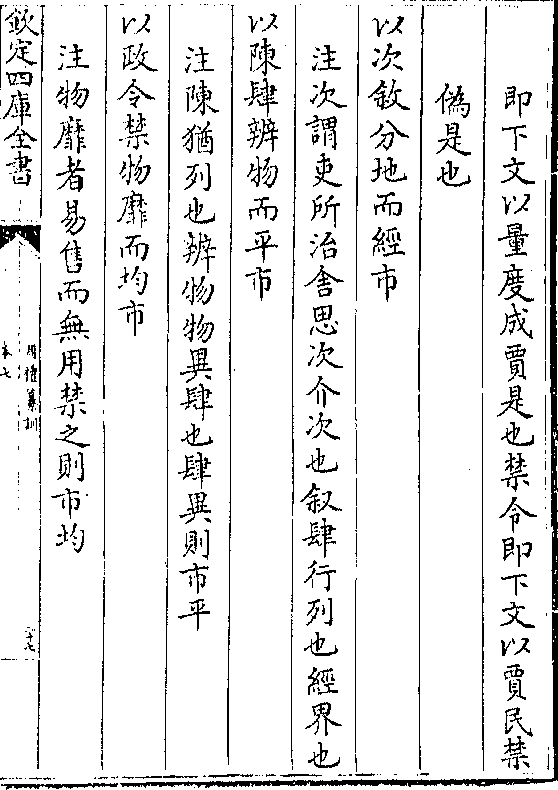 即下文以量度成賈是也禁令即下文以賈民禁
偽是也
以次敘分地而經市
注次謂吏所治舍思次介次也叙肆行列也經界也
以陳肆辨物而平市
注陳猶列也辨物物異肆也肆異則市平
以政令禁物靡而均市
注物靡者易售而無用禁之則市均
欽定四庫全書
周禮纂訓
卷七
二十七